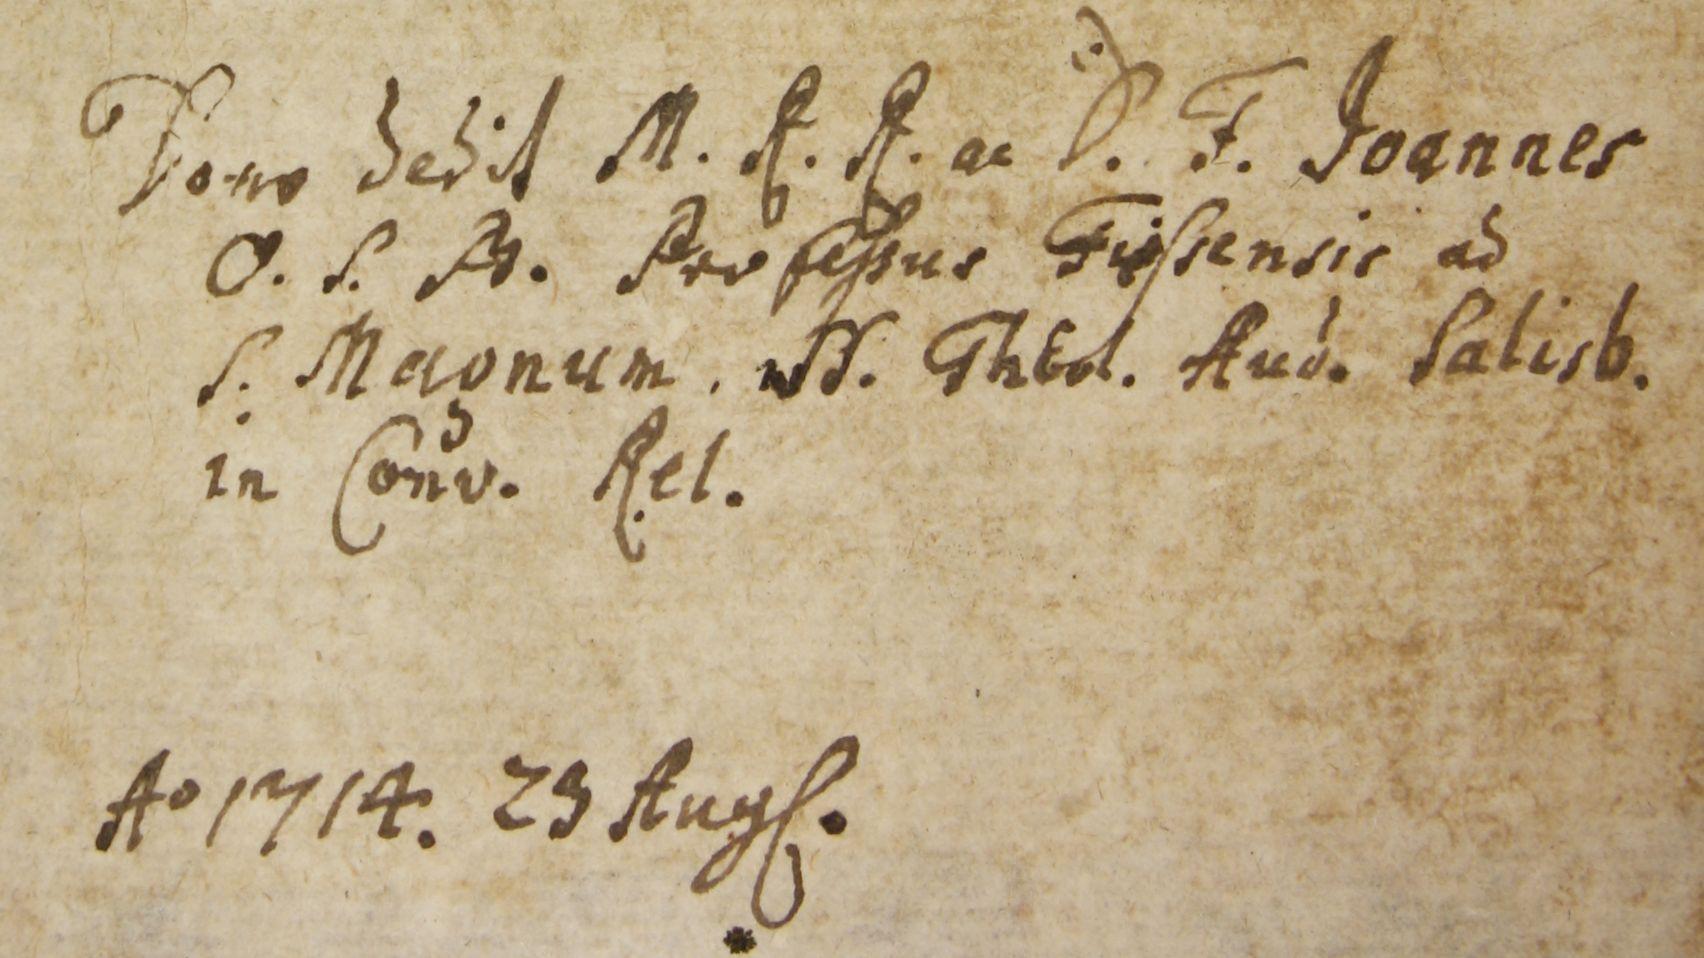 Dono dedit M. R. R. ac D. F. Joannes
O. S. B. Professus Fiessensis ad
S. Magnum. SS. Theol. Aud. Salisb.
in Conv. Rel.
Ao 1714. 23 Aug.